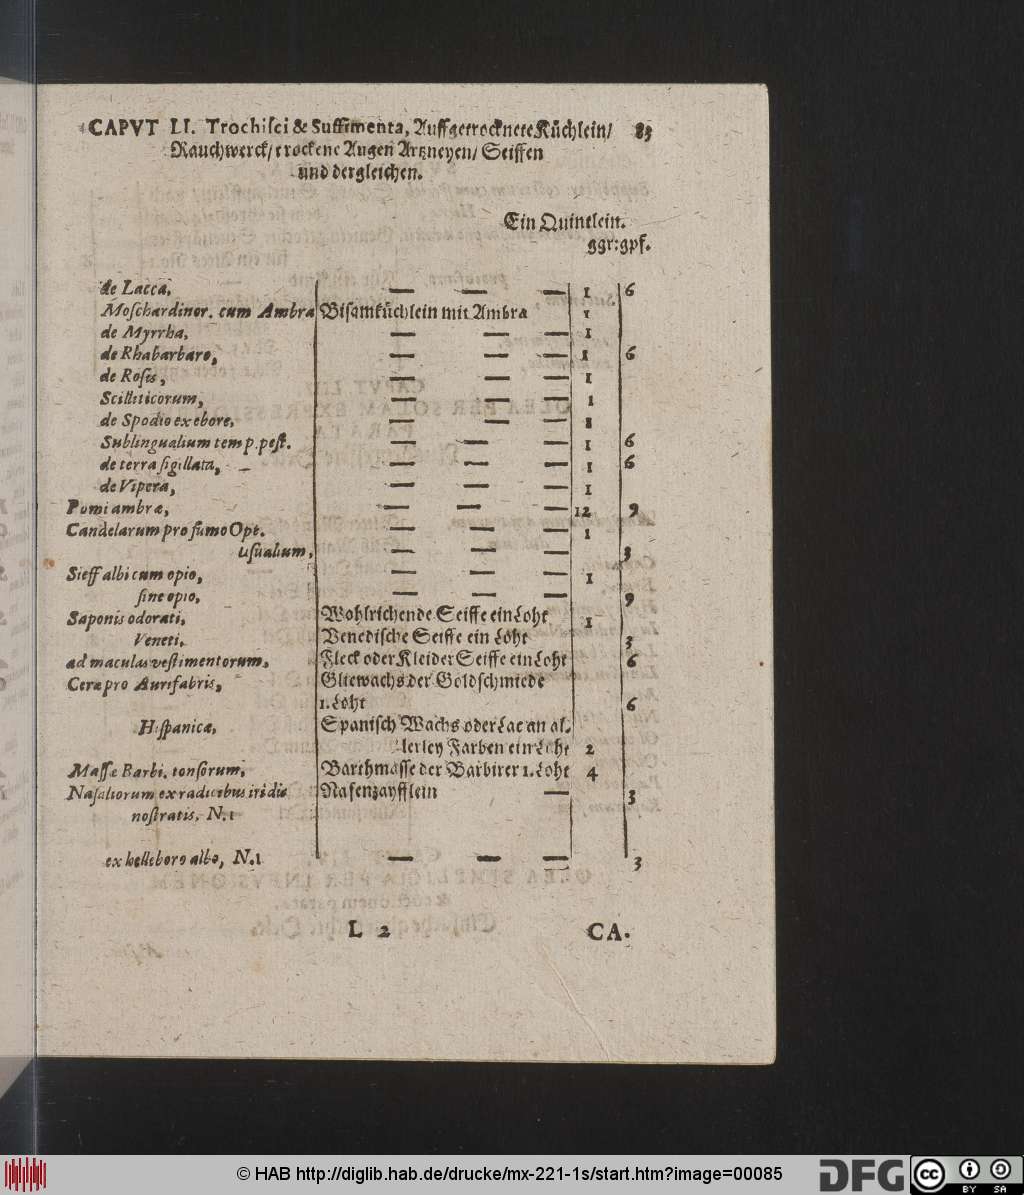 CAPVT LI. Trochiſci & Suffimenta, Auffgetrocknete Küchlein/ 83
Rauchwerck/ trockene Augen Artzneyen/ Seiffen
und dergleichen.
Ein Quintlein.
ggr: gpf.
de Lacca, — — — 1 6
Moſchardinor. cum Ambra Biſamküchlein mit Ambra 1
de Myrrha, — — — 1
de Rhabarbaro, — — — 1 6
de Roſis, — — — 1
Scilliticorum, — — — 1
de Spodio ex ebore, — — — 8
Sublingualium temp. peſt. — — — 1 6
de terra ſigillata, — — — — 1 6
de Vipera, — — — 1
Pomi ambræ, — — — 12 9
Candelarum pro fumo Opt. — — — 1
uſualium, — — — 3
Sieff albi cum opio, — — — 1
ſine opio, — — — 9
Saponis odorati, Wohlrichende Seiffe ein Loht 1
Veneti, Venediſche Seiffe ein Loht 3
ad maculas veſtimentorum, Fleck oder Kleider Seiffe ein Loht 6
Ceræ pro Aurifabris, Gliewachs der Goldſchmiede
1. Loht 6
Hiſpanicæ, Spaniſch Wachs oder Lac an al-
lerley Farben ein Loht 2
Maſſæ Barbi. tonſorum, Barthmaſſe der Barbirer 1. Loht 4
Naſaliorum ex radicibus iridis Naſenzäpfflein — 3
noſtratis, N. 1
ex helleboro albo, N. 1 — — — 3
L 2 CA-
© HAB http://diglib.hab.de/drucke/mx-221-1s/start.htm?image=00085
DFG
cc
BY SA